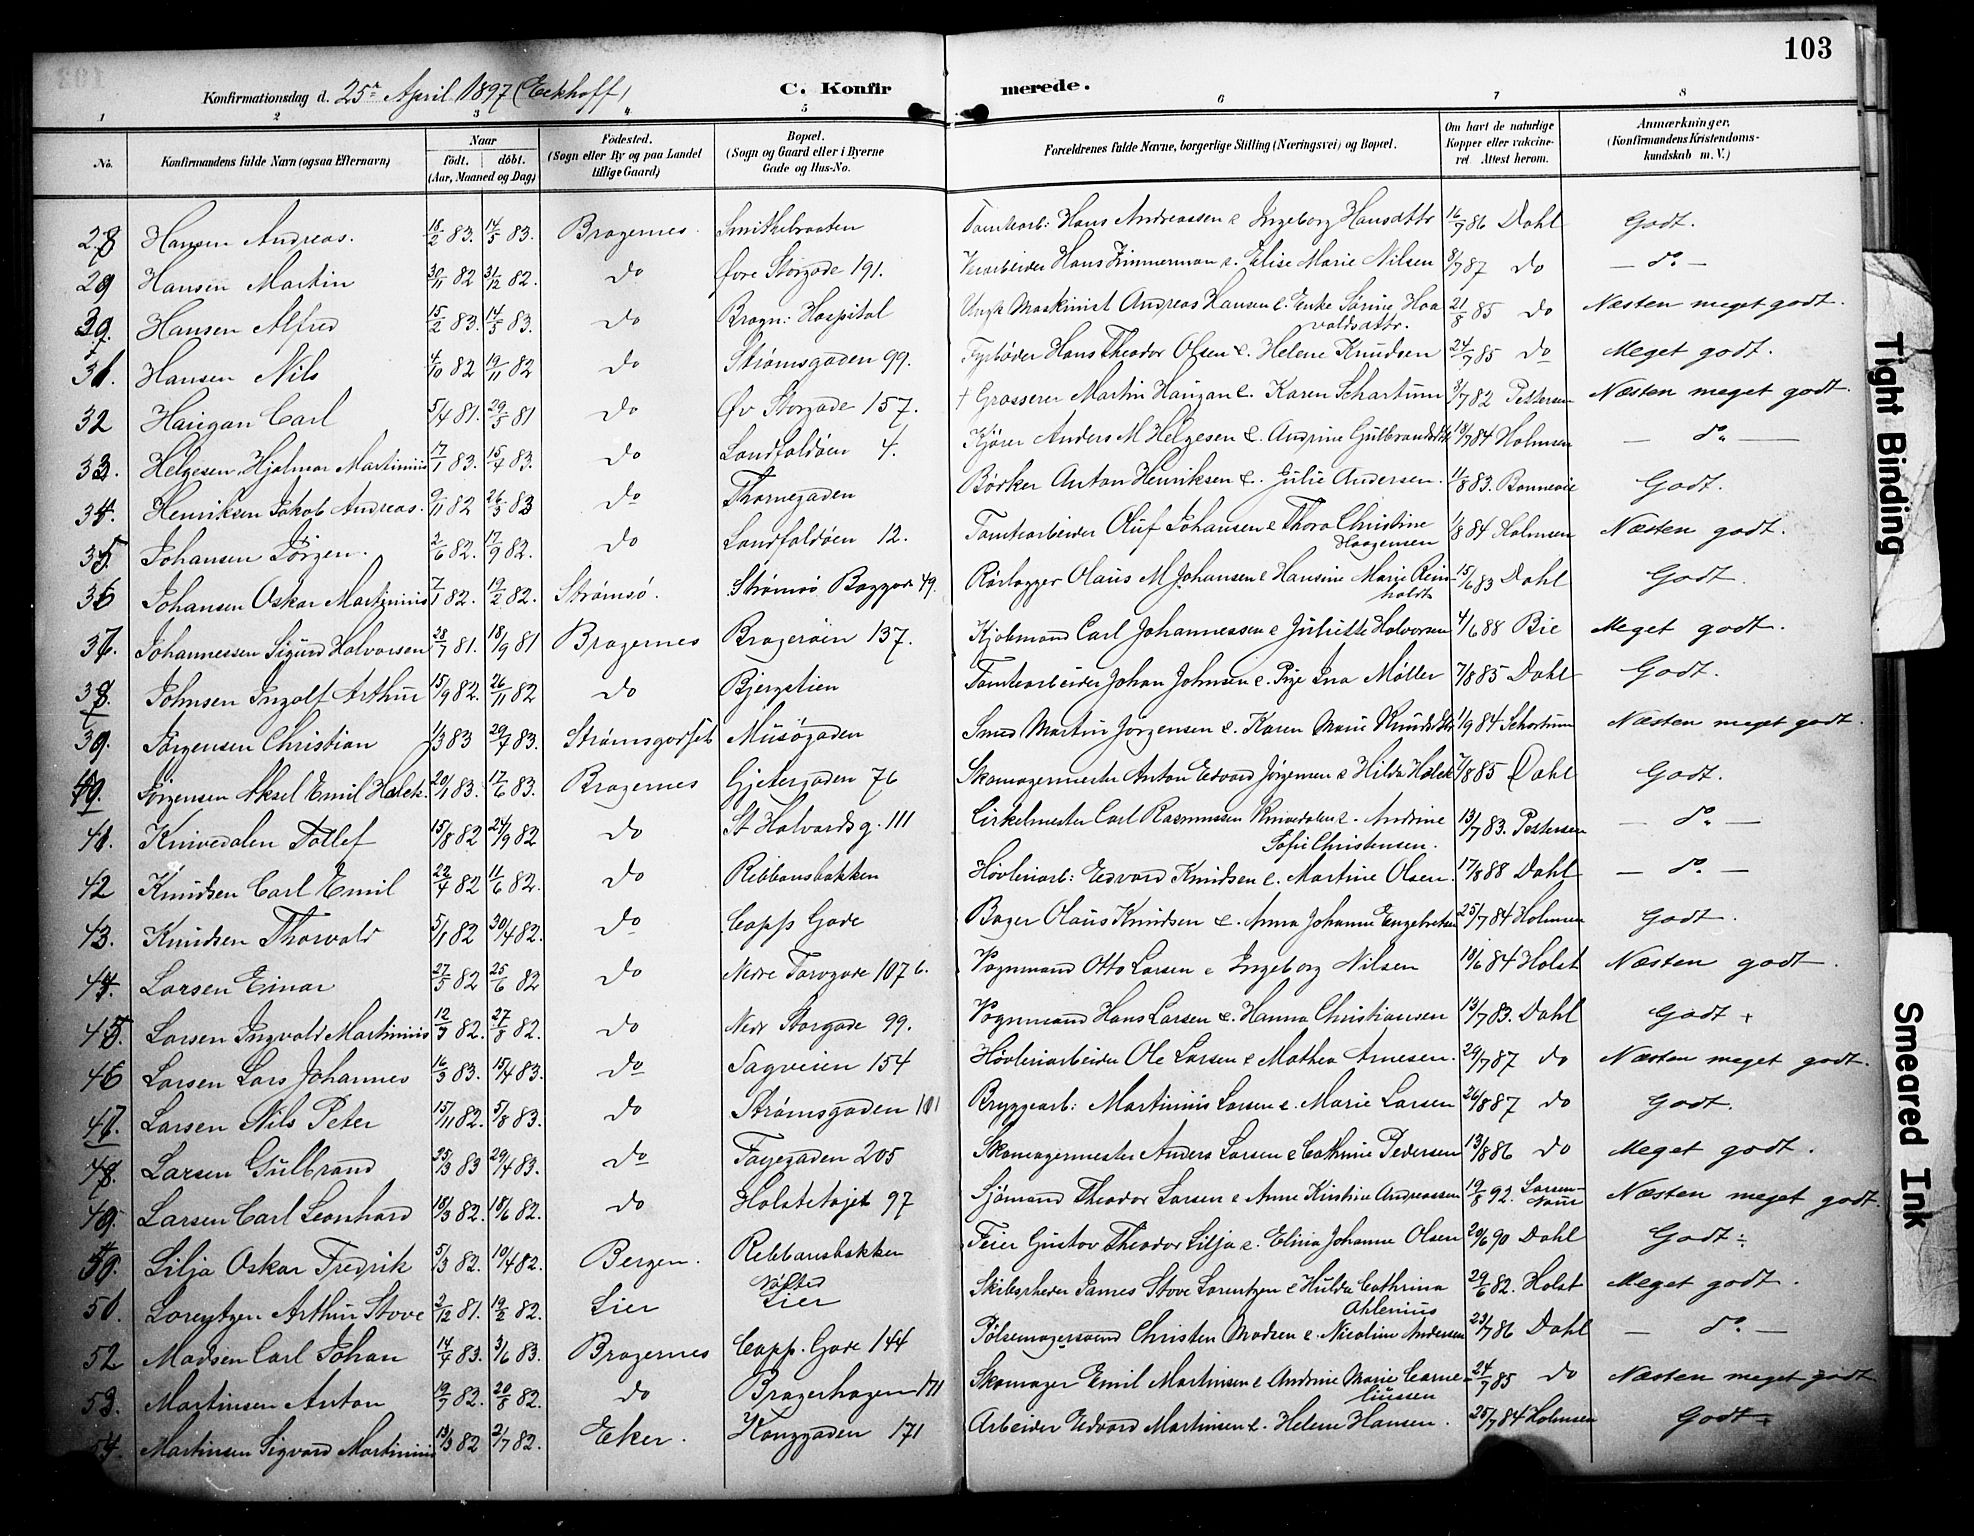 103
Konfirmationsdag d. 25de April 1897 (Eckhoff)
C. Konfirmerede.
1 2 3 4 5 6 7 8
No. Konfirmandens fulde Navn (ogsaa Efternavn) Naar født. døbt. (Aar, Maaned og Dag) Fødested. (Sogn eller By og paa Landet tillige Gaard) Bopæl. (Sogn og Gaard eller i Byerne Gade og Hus-No. Forældrenes fulde Navne, borgerlige Stilling (Næringsvei) og Bopæl. Om havt de naturlige Kopper eller vakcineret. Attest herom. Anmærkninger, (Konfirmandens Kristendomskundskab m. V.)
28 Hansen Andreas. 18/2 83. 14/5 83. Bragernes Smithebraaten Tomtearb: Hans Andreassen & Ingeborg Hansdttr 16/7 86 Dahl Godt.
29 Hansen Martin 30/11 82 31/12 82. do Øvre Storgade 191. Hans Zimmerman & Elise Marie Nilsen 8/7 87 do — do —
30. Hansen Alfred 15/2 83. 14/5 83. do Bragn: Hospital Maskinist Andreas Hansen & Enke Sørine Haavoldsdttr. 21/8 85 do Næsten meget godt.
31. Hansen Nils 4/10 82 19/11 82 do Strømsgaden 99. Fyrbøder Hans Theodor Olsen & Helene Knudsen 24/7 85 do Meget godt.
32 Haugan Carl 5/4 81. 29/5 81 do Øv Storgade 157. † Grosserer Martin Haugan & Karen Schartum 3/7 82 Pettersen Næsten meget godt.
33. Helgesen Hjalmar Martinius 17/1 83. 15/7 83. do Landfaldøen 4. Kjører Anders M Helgesen & Andrine Gulbrandsdtr 18/7 84 Holmsen — do —
34. Henriksen Jakob Andreas. 9/11 82 26/3 83 do Thornegaden Bødker Anton Henriksen & Julie Andersen. 11/8 83. Bonnevie Godt.
35. Johansen Jörgen. 2/6 82. 17/9 82. do Landfaldøen 12. Tomtearbeider Oluf Johansen & Thora Christine Haagensen 1/8 84 Holmsen Næsten godt.
36 Johansen Oskar Martinius 7/1 82. 19/2 82. Strømsø. Strømsø Baggade 49. Rørlægger Olaus M Johansen & Hansine Marie Reinholdt 15/6 83 Dahl Godt.
37. Johannessen Sigurd Halvorsen 28/7 81. 18/9 81 Bragernes Bragerøen 137. Kjøbmand Carl Johannessen & Juliette Halvorsen 4/6 88 Bie Meget godt.
38. Johnsen Ingolf Arthur 15/9 82. 26/11 82 do Bjergstien Tomtearbeider Johan Johnsen & Pige Ina Møller 7/8 85 Dahl Godt.
39. Jørgensen Christian 1/3 83 29/7 83. Strømsgodset Musøgaden Smed Martin Jørgensen & Karen Marie Knudsdtr 1/9 84 Schartum Næsten meget godt
40. Jørgensen Aksel Emil Holck. 20/1 83. 17/6 83. Bragernes Gjetergaden 76 Skomagermester Anton Edvard Jørgensen & Hilda Holck 7/8 85 Dahl Godt.
41. Knivedalen Tollef 15/8 82 24/9 82 do St Halvards g. 111 Cirkelmester Carl Rasmussen Knivedalen & Andrine Sofie Christensen. 13/7 83. Pettersen — do —
42 Knudsen Carl Emil 22/4 82 11/6 82. do Ribbansbakken Høvleriarb: Edvard Knudsen & Martine Olsen. 17/8 88 Dahl — do —
43. Knudsen Thorvald 5/1 82 30/4 82. do Capp Gade Bager Olaus Knudsen & Anna Johanne Engebretsen 25/7 84 Holmsen Godt.
44. Larsen Einar 27/5 82 25/6 82 do Nedre Torvgade 107 b. Vognmand Otto Larsen & Ingeborg Nilsen 10/6 84 Holst Næsten godt.
45. Larsen Ingvald Martinius 12/3 82. 27/8 82. do Nedr Storgade 99. Vognmand Hans Larsen & Hanna Christiansen 13/7 83. Dahl Godt +
46 Larsen Lars Johannes 16/3 83. 15/4 83. do Sagveien 154 Høvleriarbeider Ole Larsen & Mathea Arnesen. 29/7 87 do Næsten meget godt.
47. Larsen Nils Peter 15/11 82. 5/8 83. do Strømsgaden 101 Bryggearb: Martinius Larsen & Marie Larsen 26/8 87 do Godt.
48. Larsen Gulbrand 25/3 83 29/4 83. do Fayegaden 205 Skomagermester Anders Larsen & Cathrine Pedersen 13/8 86 do Meget godt.
49. Larsen Carl Leonhard 18/3 82. 18/6 82. do Holstetøjet 97 Sjømand Theodor Larsen & Anne Kirstine Andreassen 19/8 92. Larsen- Næsten meget godt.
50. Lilja Oskar Fredrik 5/3 82. 10/4 82. Bergen. Ribbansbakken Feier Gustav Theodor Lilja & Elina Johanne Olsen 20/6 90 Dahl Godt ÷
51. Lorentzen Arthur Stove 2/12 81. 19/2 82. Lier Lier Skibsrheder James Stove Lorentzen & Hulda Cathrina Ahlenius 29/6 82. Holst Meget godt.
52 Madsen Carl Johan 14/4 83. 3/6 83. Bragernes Capp. Gade 144 Pølsemagersvend Christen Madsen & Nicoline Andersen 23/7 86 Dahl — do —
53. Martinsen Anton 19/7 82. 20/8 82. do Bragerhagen 171 Skomager Emil Martinsen & Andrine Marie Corneliussen 24/7 85 do Næsten meget godt
54. Martinsen Sigvard Martinius 13/3 82 2/7 82. Eker. Konggaden 171 Arbeider Edvard Martinsen & Helene Hansen. 25/7 84 Holmsen Godt ÷
Tight Binding
Smeared Ink